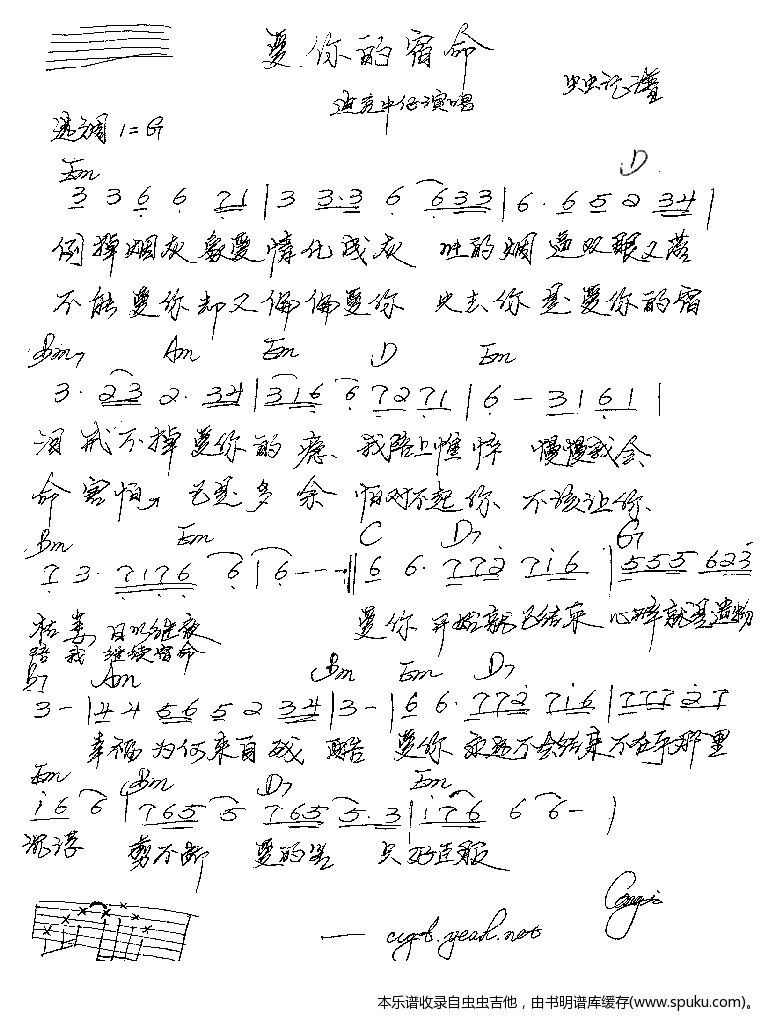 爱你的宿命
迪克牛仔演唱
虫虫记谱
选调 1=G
Em D
3 3 6 6 71 | 3 3·3 6 633 | 6· 6 5 2 34 |
倒掉烟灰 象爱情化成灰 吐的烟 逼双眼又落
不能爱你却又偏偏爱你 失去你是爱你的宿
Bm7 Am Em D Em
3· 23 2· 34 | 316 6 7271 | 6 - 31 61 |
泪 戒不掉爱你的瘾、我陪上憔悴 慢慢我会
命 害怕 已是多余 怕对不起你、不该让你、
Bm Em C D7 G7
7 3· 7176 6 | 6 - - - :‖ 6 6· 772 716 | 555 623
枯萎 日以继夜 爱你 开始就已结束 心碎就是遗物
陪我 继续宿命
B7 Am Bm Em D7
3 - | 44 56 5 2 34 | 3 - | 6 6· 772 716 | 777 27
幸福为何来自残酷 爱你 永远不会结束不在乎那里
Em Bm D7 Em
1 6 6 | 765 5 765 5·3 | 176 6 6 - |
沉浮 剪不断 爱的 只好臣服
— cgt.yeah.net
本乐谱收录自虫虫吉他，由书明谱库缓存(www.spuku.com)。